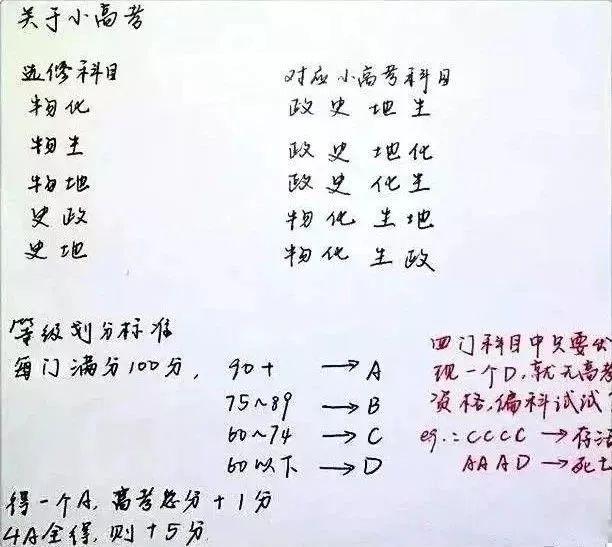 关于小高考
选修科目 对应小高考科目
物化 政史地生
物生 政史地化
物地 政史化生
史政 物化生地
史地 物化生政
等级划分标准
每门满分100分, 90+ → A
75~89 → B
60~74 → C
60以下 → D
四门科目中只要出
现一个D,就无高考
资格,偏科试试
eg.: CCCC → 存活
AAAD → 死亡
得一个A,高考总分+1分
4A全得,则+5分